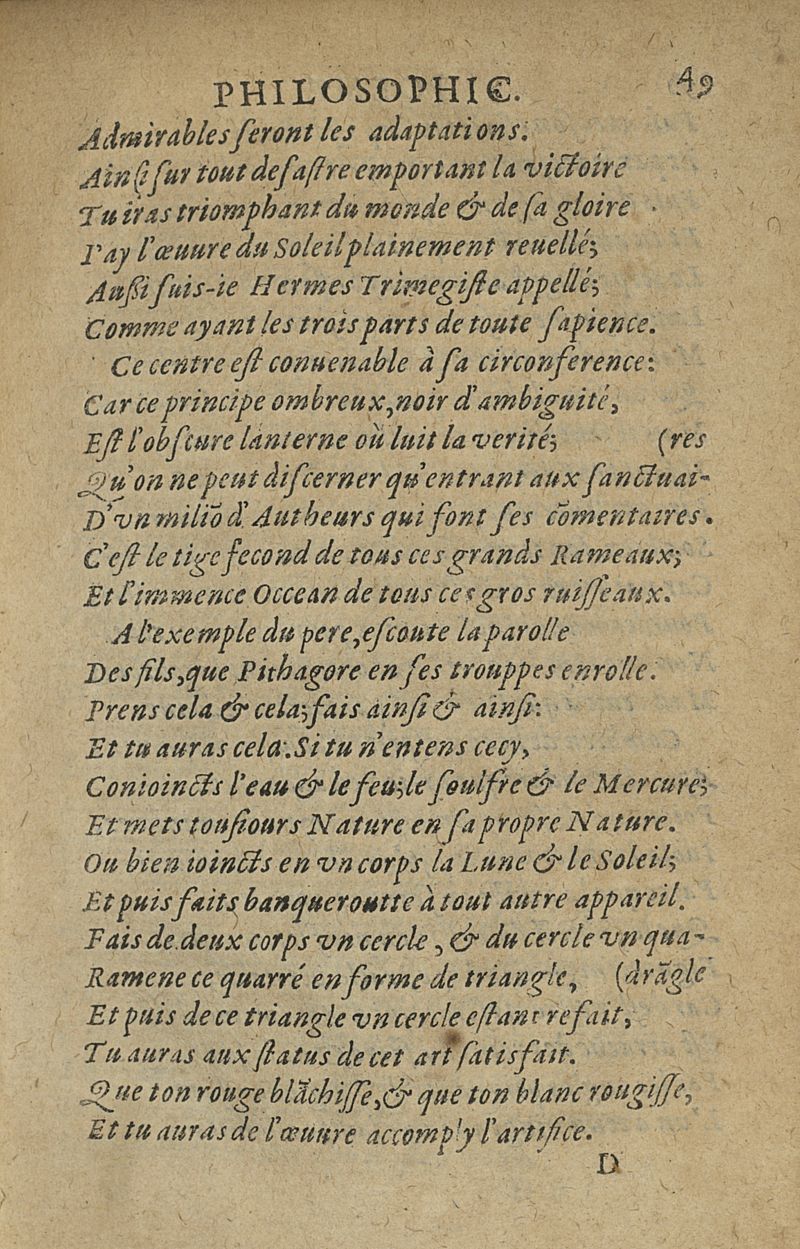 PHILOSOPHIE. 49
Admirables ſeront les adaptations.
Ainſi ſur tout deſaſtre emportant la victoire
Tu iras triomphant du monde & de ſa gloire
I'ay l'œuure du Soleil plainement reuellé;
Auſſi ſuis-ie Hermes Trimegiſte appellé;
Comme ayant les trois parts de toute ſapience.
Ce centre eſt conuenable à ſa circonference:
Car ce principe ombreux, noir d'ambiguité,
Eſt l'obſcure lanterne où luit la verité; (res
Qu'on ne peut diſcerner qu'entrant aux ſanctuai-
D'vn miliō d'Autheurs qui font ſes cōmentaires.
C'eſt le tige fecond de tous ces grands Rameaux;
Et l'immence Occean de tous ces gros ruiſſeaux.
A l'exemple du pere, eſcoute la parolle
Des fils, que Pithagore en ſes trouppes enrolle.
Prens cela & cela; fais ainſi & ainſi:
Et tu auras cela. Si tu n'entens cecy,
Conioincts l'eau & le feu; le ſoulfre & le Mercure;
Et mets touſiours Nature en ſa propre Nature.
Ou bien ioincts en vn corps la Lune & le Soleil;
Et puis faits banqueroutte à tout autre appareil.
Fais de deux corps vn cercle, & du cercle vn qua-
Ramene ce quarré en forme de triangle, (drāgle
Et puis de ce triangle vn cercle eſtant refait,
Tu auras aux ſtatus de cet art ſatisfait.
Que ton rouge blāchiſſe, & que ton blanc rougiſſe,
Et tu auras de l'œuure accomply l'artifice.
D